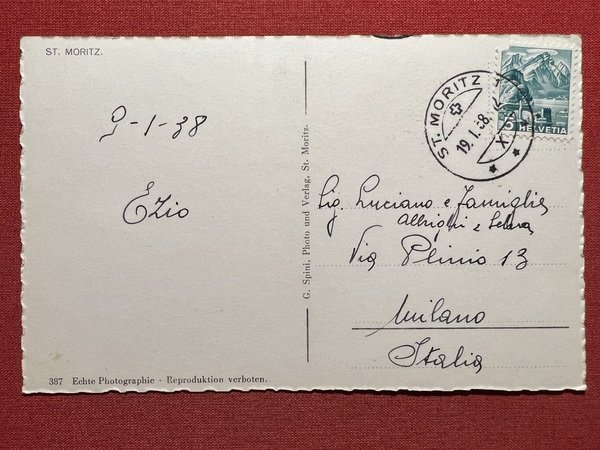 ST. MORITZ.
9-1-38
Ezio
G. Spini, Photo und Verlag, St. Moritz.
387 Echte Photographie - Reproduktion verboten.
ST. MORITZ 1
19.I.38.
X
5 HELVETIA
Sig. Luciano e Famiglia
Albrighi e Selva
Via Plinio 13
Milano
Italia